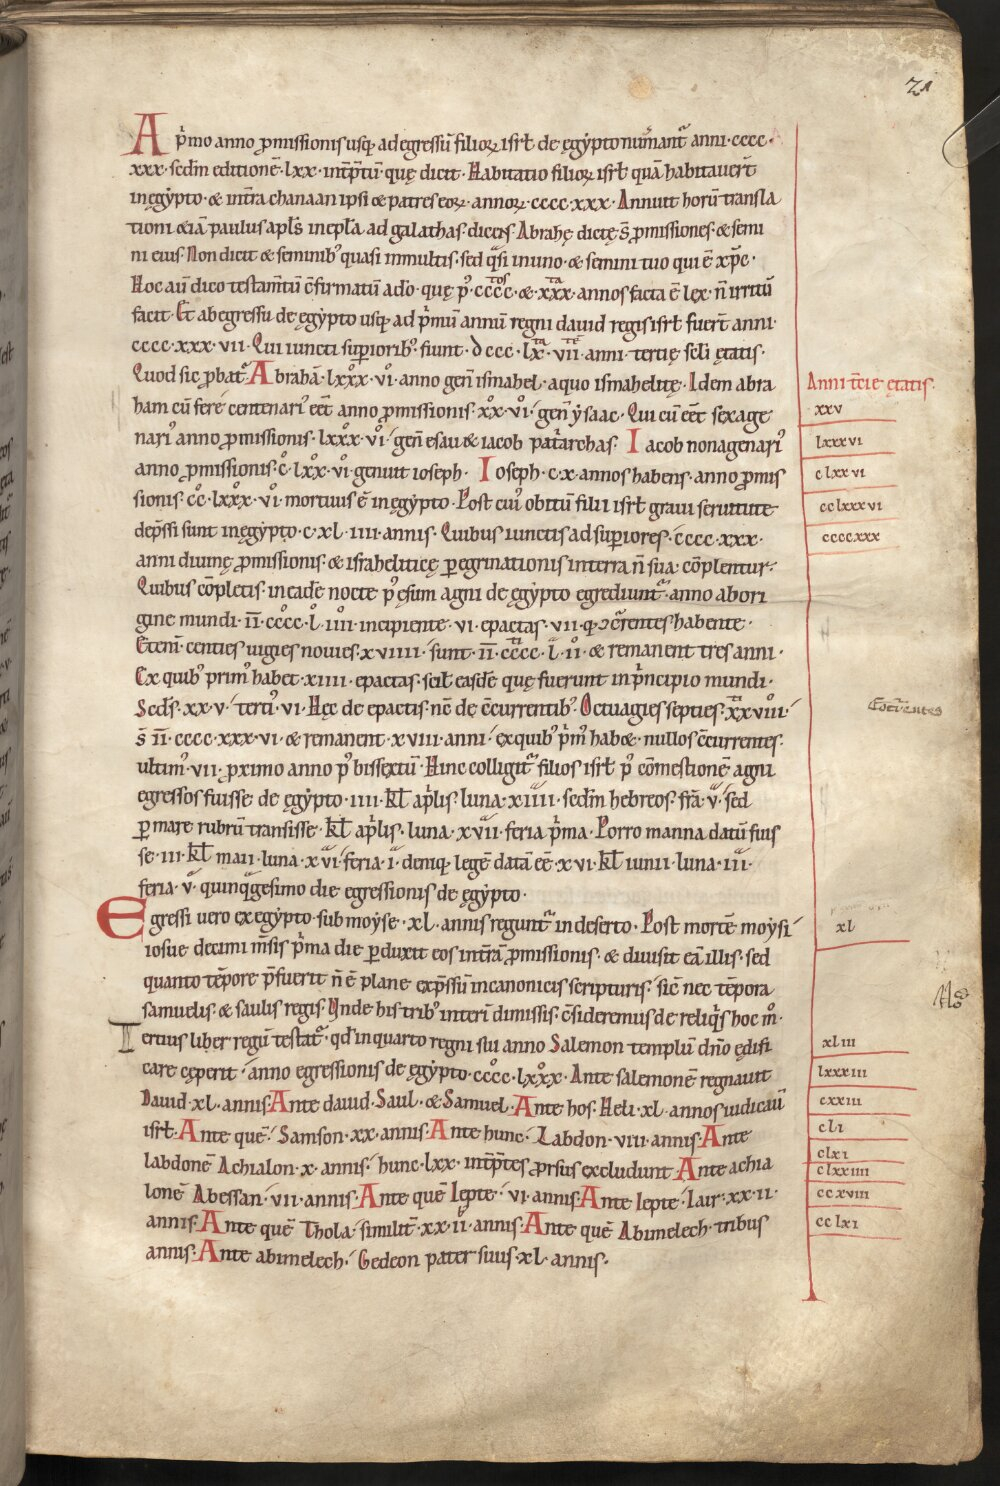 21
A p͛mo anno ꝓmissionis usq; ad egressū filioꝝ isrł de ęgẏpto num̄ant᷑ anni · cccc ·
xxx · sedm̄ editionē · lxx · int̄p̄tū · quę dicit · Habitatio filioꝝ isrł quā habitauer̄t
in ęgẏpto · & int̄ra chanaan ipsi & patres eoꝝ · annoꝝ · cccc · xxx · Annuit horū transla
tioni & iā paulus apłs in epła ad galathas dicēs · Abrahę dictę s̄ ꝓmissiones · & semi
ni eius · Non dicit & seminibꝰ quasi in multis · sed q͛si in uno · & semini tuo qui ē xp̄c ·
Hoc aū dico testam̄tū c̄firmatū a do · quę pꝰ · cccc^tos · & xxx^ta · annos facta ē lex · n̄ irritū
facit · Et ab egressu de ęgẏpto usq; ad p͛mū annū regni dauid regis isrł fuer̄t anni ·
cccc · xxx · vii · Qui iuncti supioribꝰ · fiunt · dccc · lx^ta · vii^tē · anni · tertię sc̄li ętatis ·
Quod sic ꝓbat᷑ Abrahā · lxxx^o · vi^o · anno gen̄ ismahel · a quo ismahelitę · Idem abra
Anni t̄cię ętatis ·
ham cū fere centenariꝰ eēt anno ꝓmissionis · xx^o · vi^o · gen̄ ẏsaac · Qui cū eēt sexage
xxv
nariꝰ anno ꝓmissionis · lxxx^o · vi^o · gen̄ esau & iacob pat͛archas · Iacob nonagenariꝰ
lxxxvi
anno ꝓmissionis · c^o · lxx^o · vi^o · genuit ioseph · Ioseph · c · x · annos habens · anno ꝓmis
c lxx vi
sionis · cc^o · lxxx^o · vi^o · mortuus ē in ęgẏpto · Post cuiꝰ obitū filii isrł graui seruitute
cc lxxx vi
dep̄ssi sunt in ęgẏpto · c · xl · iiii · annis · Quibus iunctis ad supiores · cccc · xxx ·
cccc xxx
anni diuinę ꝓmissionis · & israheliticę ꝑegrinationis in terra n̄ sua · cōplentur ·
Quibus cōpletis · in eadē nocte pꝰ esum agni de ęgẏpto egrediunt᷑ · anno ab ori
gine mundi · ii̅ · cccc^o · l^o · iiii^o · incipiente · vi · epactas · vii · q; ↄc̄rentes habente ·
Eteni centies uigies nouies · xviiii · sunt · ii̅ · cccc^ti · l^i · ii^o · & remanent tres anni ·
Ex quibꝰ primꝰ habet · xiiii · epactas · scił easdē quę fuerunt in p͛ncipio mundi ·
Scds̄ · xx · v · tertiꝰ · vi · Hęc de epactis · nc̄ de c̄currentibꝰ · Octuagies septies · xx^ta viii^o ·
s̄ ii̅ · cccc · xxx · vi · & remanent · xviii · anni · ex quibꝰ p͛mꝰ habꝫ · nullos c̄currentes ·
C̄oc͛rentes
ultimꝰ · vii · ꝓximo anno pꝰ bissextū · Hinc colligit᷑ filios isrł pꝰ com̄estionē agni
egressos fuisse de ęgẏpto · iiii · kł · ap͛lis · luna · xiiii · sedm̄ hebreos · fr̄a · v · sed
ꝑ mare rubrū transisse · kł ap͛lis · luna · xvii · feria p͛ma · Porro manna datū fuis
se · iii · kł maii · luna · xvi · feria · i · deniq; legē datā eē · xvi · kł iunii · luna · iii ·
feria · v · quinq͛gesimo die egressionis de ęgẏpto ·
Egressi uero ex egẏpto · sub moẏse · xl · annis regunt᷑ in deserto · Post mortē moẏsi
xl
iosue decimi m̄sis p͛ma die ꝑduxit eos int̄rā ꝓmissionis · & diuisit eā illis · sed
quanto tēpore p̄fuerit n̄ ē plane exp̄ssū in canonicis scripturis · sic̄ nec tēpora
samuelis · & saulis regis · Vnde his tribꝰ interi dimissis · c̄sideremus de reliq͛s hoc mͦ ·
Tertius liber regū testat᷑ · qđ in quarto regni sui anno Salemon templū dn̄o ędifi
xl iii
care cęperit · anno egressionis de ęgẏpto · cccc^o · lxxx^o · Ante salemonē regnauit
lxxxiii
Dauid · xl · annis · Ante dauid · Saul · & Samuel · Ante hos · Heli · xl · annos iudicaū
cxxiii
isrł · Ante quē · Samson · xx · annis · Ante hunc · Labdon · viii · annis · Ante
cli
labdonē Achialon · x · annis · hunc · lxx · int̄p̄tes ꝓrsus excludunt · Ante achia
clxi
clxxiiii
lonē Abessan · vii · annis · Ante quē Iepte · vi · annis · Ante iepte · Iair · xx · ii ·
cc xviii
annis · Ante quē Thola · similit̄ · xx · ii · annis · Ante quē Abimelech · tribus
cc lxi
annis · Ante abimelech · Gedeon pater suus · xl · annis ·